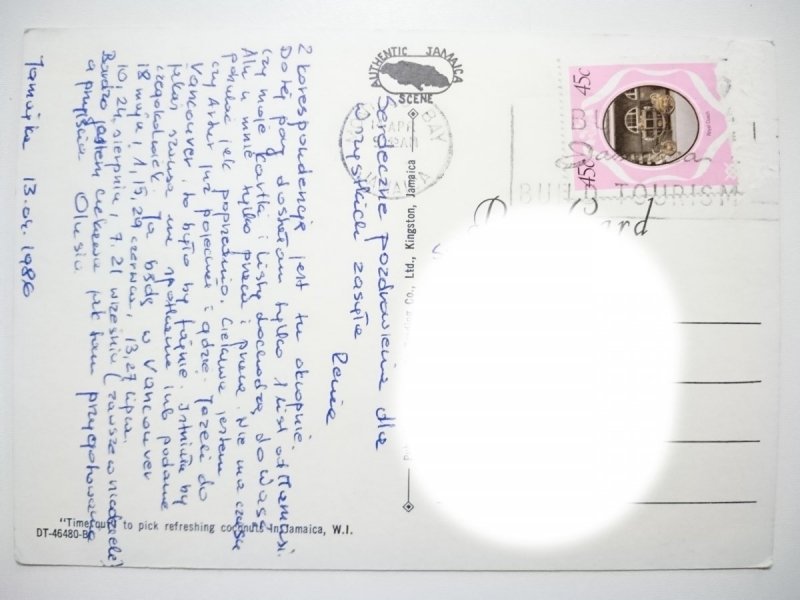 Jamajka 13.04.1986
Serdeczne pozdrowienia dla
wszystkich zasyła
Renia
Z korespondencją jest tu okropnie.
Do tej pory dostałam tylko 1 list od Mamusi.
czy moje kartki i listy dochodzą do Was?
Ale u mnie tylko praca i praca. Nie ma czasu
jak poprzednio. Ciekawa jestem
czy Artur już pojechał i gdzie. Jeżeli do
Vancouver, to było by fajnie. Istniała by
jakaś szansa na spotkanie lub podanie
czegokolwiek. Ja będę w Vancouver
18 maja, 1, 15, 29 czerwca, 13, 27 lipca,
10, 24 sierpnia, 7, 21 września (zawsze w niedzielę)
Bardzo jestem ciekawa jak tam przygotowania
a przyjścia Olusia.
AUTHENTIC JAMAICA
SCENE
BAY
APR
AM
JAMAICA
45c
45c
Royal Coach
BUILD TOURISM
Post Card
Co., Ltd., Kingston, Jamaica
"Time out" to pick refreshing coconuts in Jamaica, W.I.
DT-46480-B